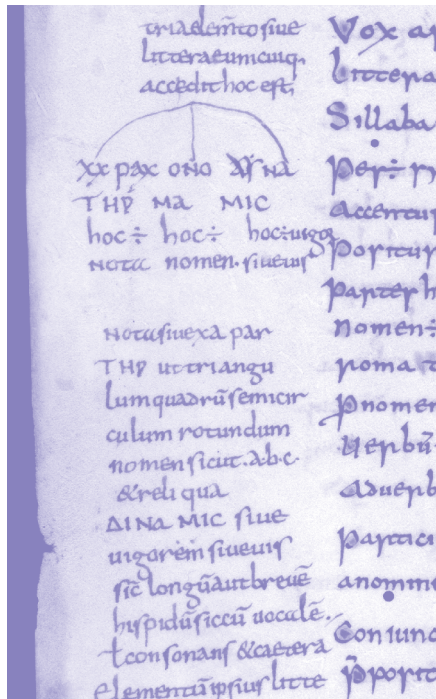 tria elem̄to siue
littera eumcuiq.
accedit hoc est,
xx pax ono ΔΥ na
THP ma MIC
hoc÷ hoc÷ hoc÷uigor
nota nomen. siueuis
nota siue xa par
THP ut triangu
lum quadrū semicir
culum rotundum
nomen sicut . a . b . c .
& reli qua
ΔINa MIC siue
uigorem siue uis
sic̄ longū aut breuē
hispidū siccū uocalē .
ł consonans & caetera
elementū ipsius litte
Vox
Littera
Sillaba
Per÷
accentus
Poritur
Parter h
Nomen÷
roma
Pnomen
Uerbū
aduerb
Partici
anomine
Coniunc
P̄porit